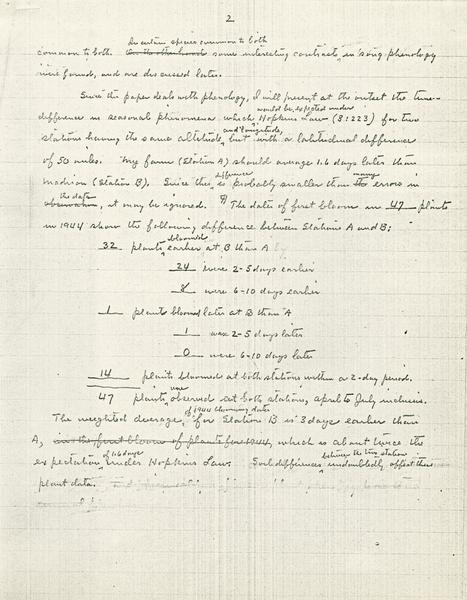 2
In certain species common to both
common to both. On the other hand some interesting contrasts in song phenology
were found, and are discussed later.
Since the paper deals with phenology, I will present at the outset the time-
would be expected under
difference in seasonal phenomena which Hopkins Law (8:223) for two
and longitude,
stations having the same altitude, but with a latitudinal difference
of 50 miles. My farm (Station A) should average 1.6 days later than
difference many
Madison (Station B). Since this is probably smaller than the errors in
the data
observation, it may be ignored. The dates of first bloom on 47 plants
in 1944 show the following difference between Stations A and B:
bloomed
32 plants earlier at B than A
24 were 2-5 days earlier
8 were 6-10 days earlier
1 plant bloomed later at B than A
1 was 2-5 days later
0 were 6-10 days later
14 plants bloomed at both stations within a 2-day period.
were
47 plants observed at both stations, April to July inclusive.
of 1944 blooming dates
The weighted average for Station B is 3 days earlier than
A, in the first bloom of plants for 1944, which is about twice the
of 1.6 days between the two stations
expectation under Hopkins Law. Soil differences undoubtedly affect these
plant data.